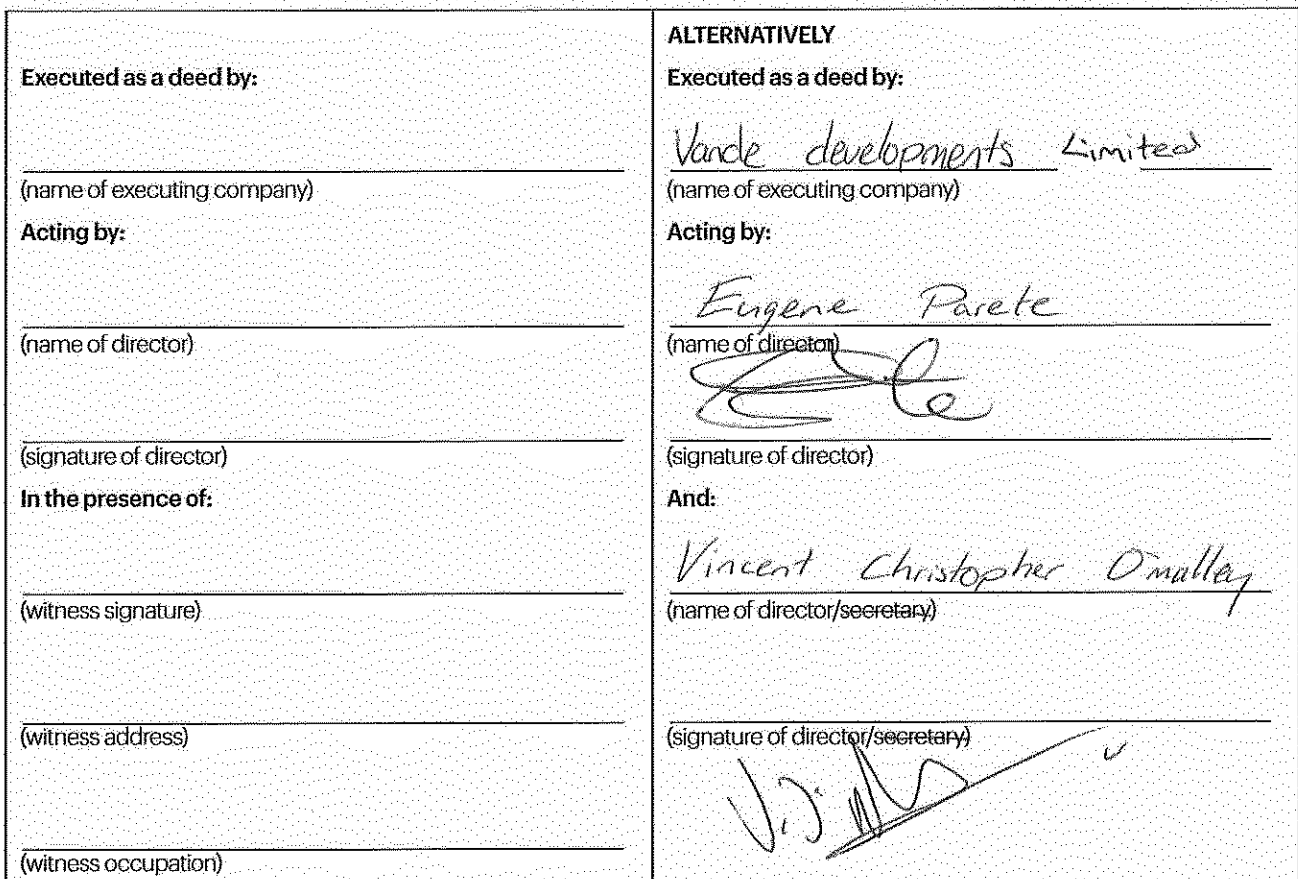 Executed as a deed by:
(name of executing company)
Acting by:
(name of director)
(signature of director)
In the presence of:
(witness signature)
(witness address)
(witness occupation)
ALTERNATIVELY
Executed as a deed by:
Vande developments Limited
(name of executing company)
Acting by:
Eugene Parete
(name of director)
(signature of director)
And:
Vincent Christopher O'malley
(name of director/secretary)
(signature of director/secretary)